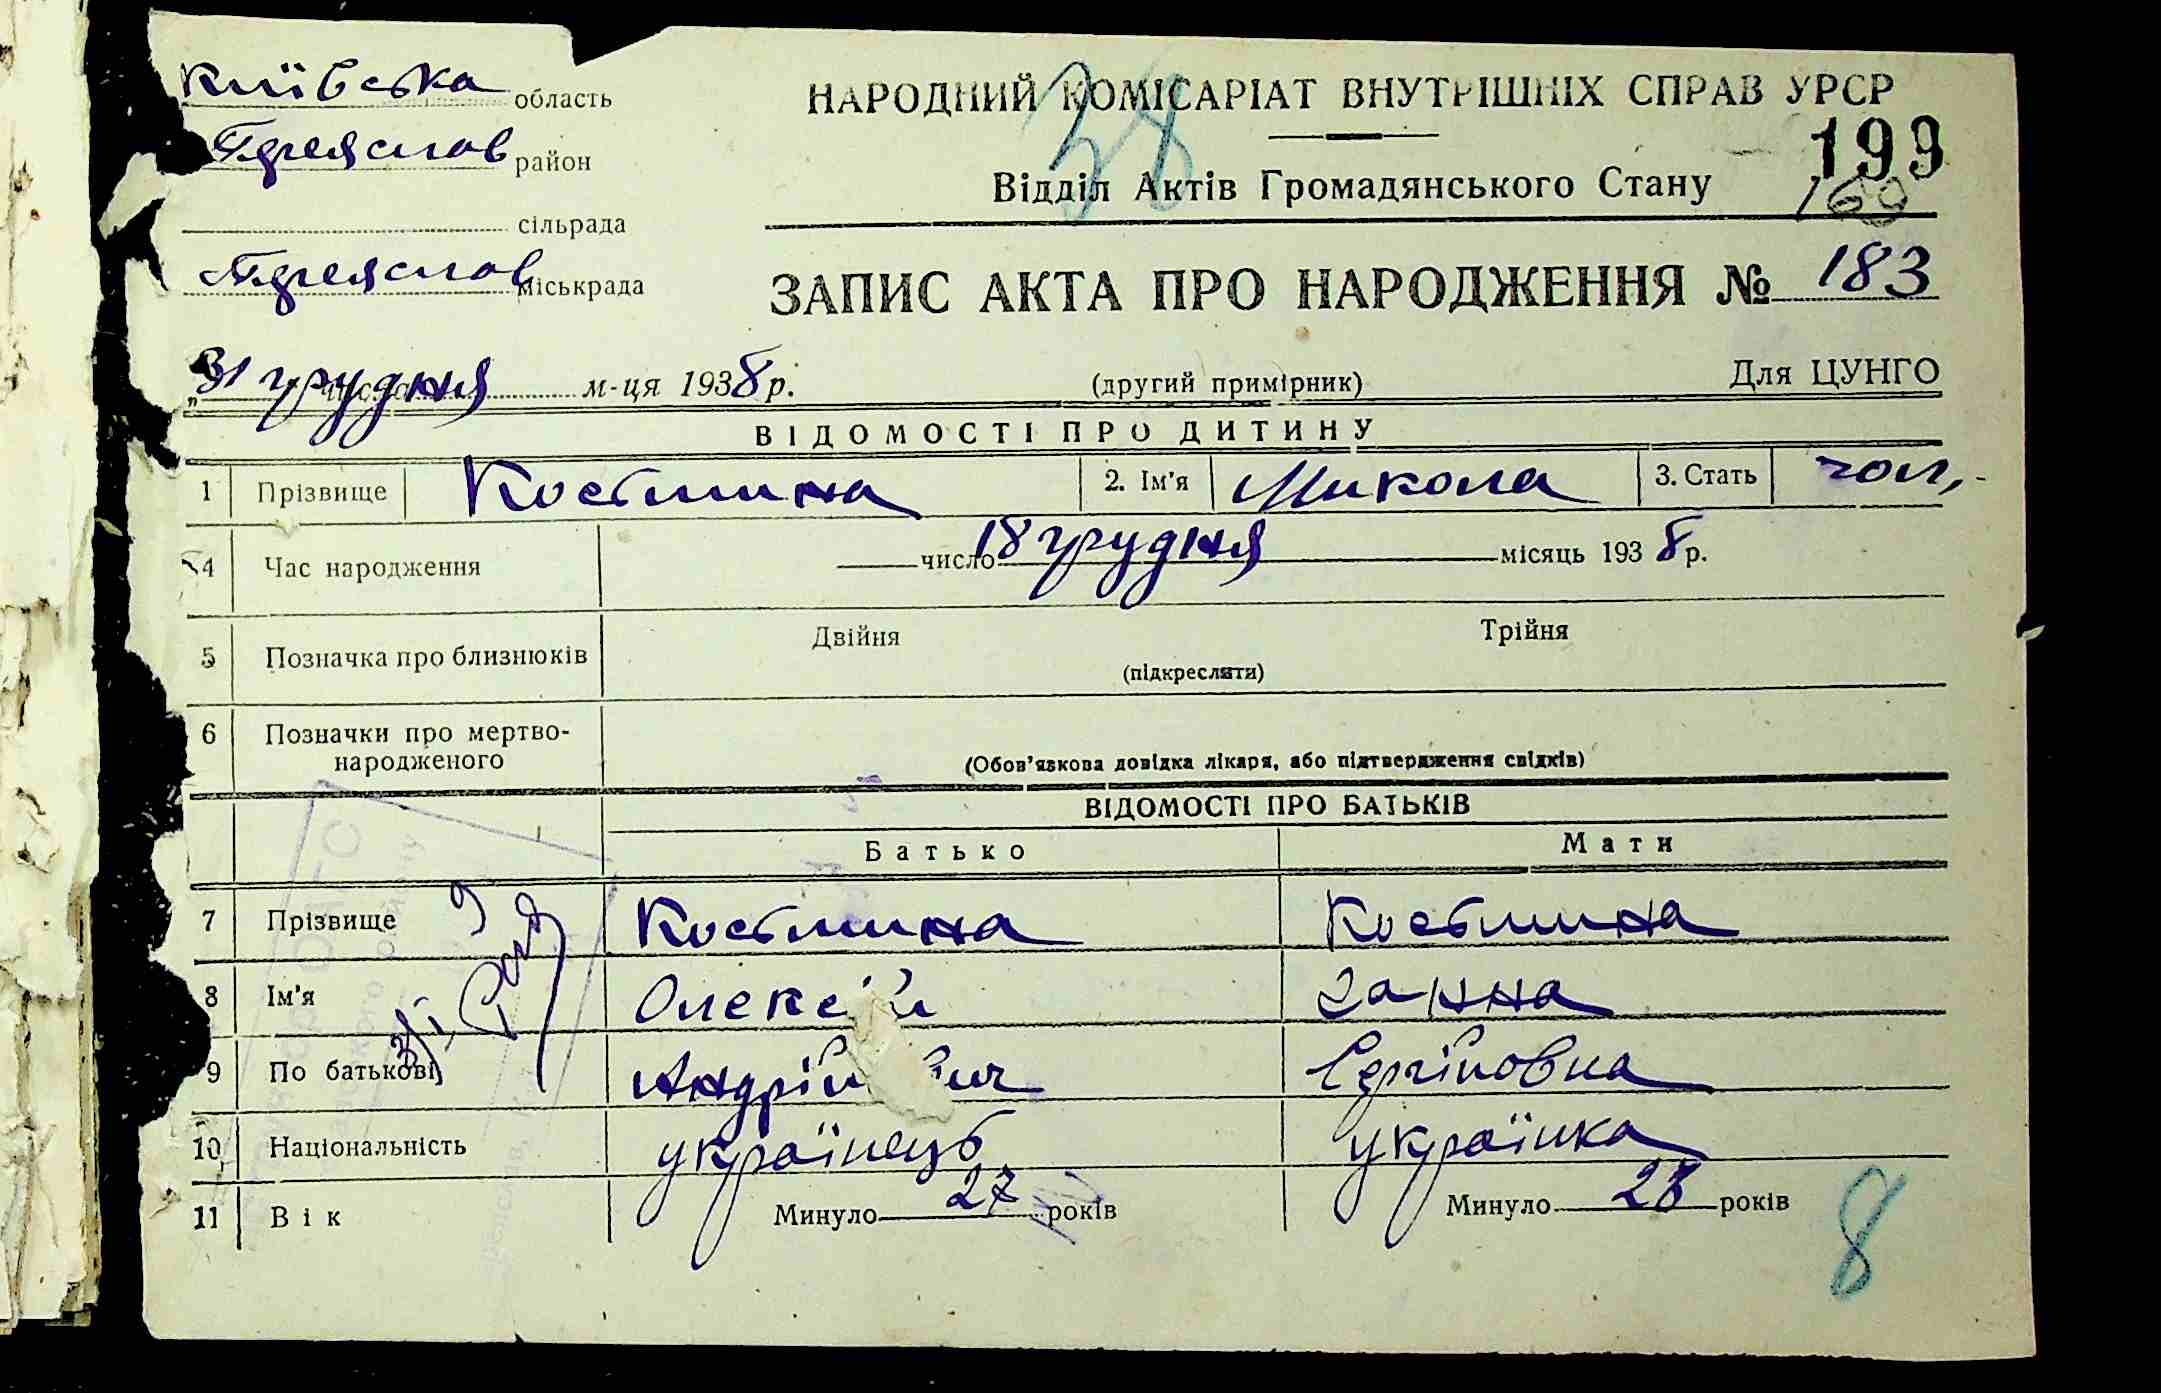 Київська область
Переяслав район
сільрада
Переяслав міськрада
НАРОДНИЙ КОМІСАРІАТ ВНУТРІШНІХ СПРАВ УРСР
38
199
160
Відділ Актів Громадянського Стану
ЗАПИС АКТА ПРО НАРОДЖЕННЯ № 183
„31 грудня м-ця 1938 р. (другий примірник) Для ЦУНГО
ВІДОМОСТІ ПРО ДИТИНУ
1 Прізвище Костшина 2. Ім'я Микола 3. Стать чол.
4 Час народження число 18 грудня місяць 1938 р.
5 Позначка про близнюків Двійня Трійня
(підкреслити)
6 Позначки про мертво-
народженого (Обов'язкова довідка лікаря, або підтвердження свідків)
ВІДОМОСТІ ПРО БАТЬКІВ
Батько Мати
7 Прізвище Костшина Костшина
8 Ім'я Олексій Ганна
9 По батькові Андрійович Сергіївна
10 Національність українець українка
11 Вік Минуло 27 років Минуло 28 років
8